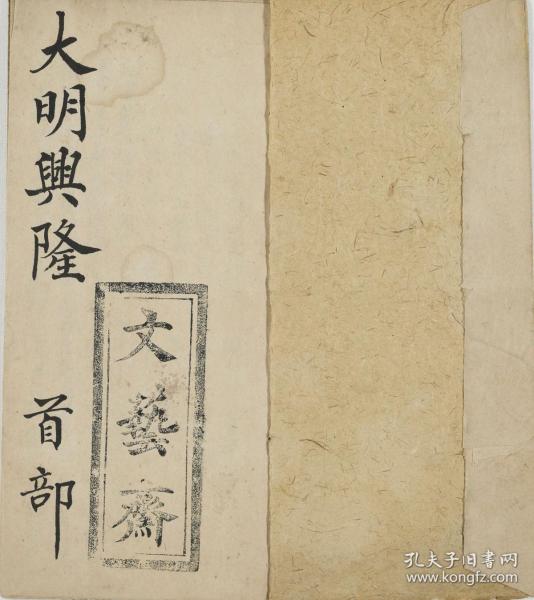 大明興隆 首部
文藝齋
孔夫子旧书网
www.kongfz.com